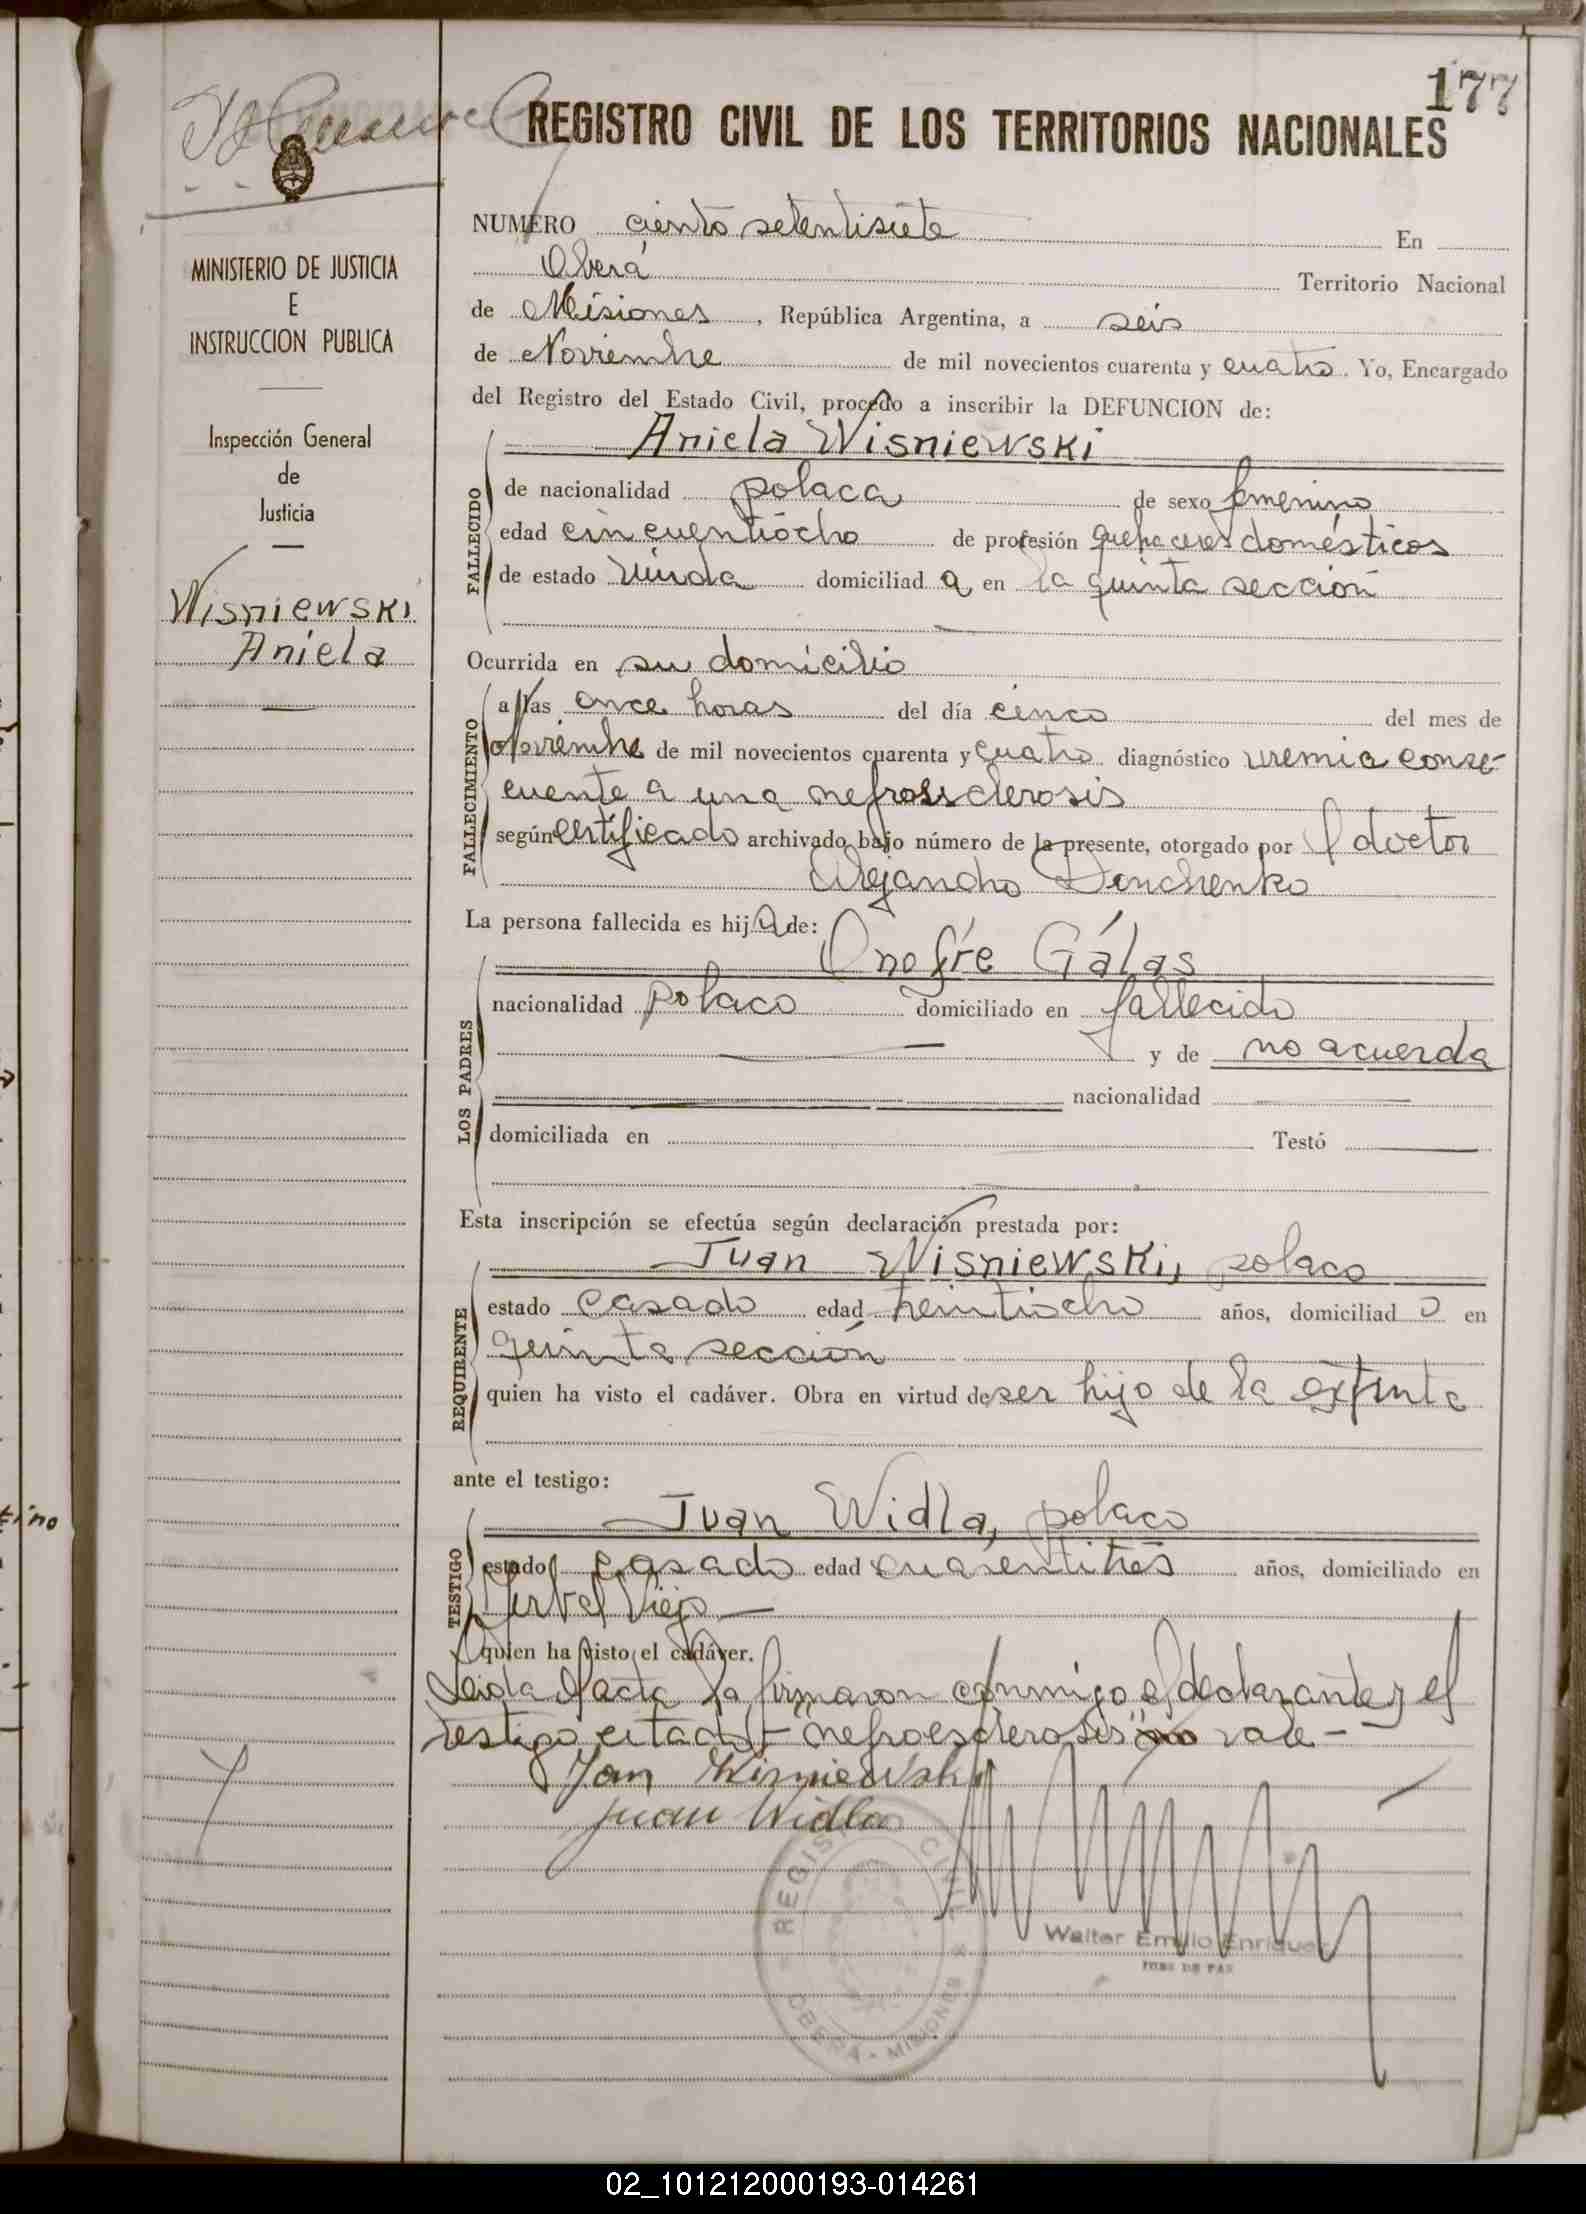 177
REGISTRO CIVIL DE LOS TERRITORIOS NACIONALES
MINISTERIO DE JUSTICIA
E
INSTRUCCION PUBLICA
Inspección General
de
Justicia
Wisniewski
Aniela
NUMERO ciento setentisiete En
Oberá Territorio Nacional
de Misiones, República Argentina, a seis
de Noviembre de mil novecientos cuarenta y cuatro. Yo, Encargado
del Registro del Estado Civil, procedo a inscribir la DEFUNCION de:
Aniela Wisniewski
FALLECIDO
de nacionalidad polaca de sexo femenino
edad cincuentiocho de profesión quehaceres domésticos
de estado viuda domiciliad a en la quinta sección
Ocurrida en su domicilio
FALLECIMIENTO
a las once horas del día cinco del mes de
Noviembre de mil novecientos cuarenta y cuatro diagnóstico uremia conse-
cuente a una nefroesclerosis
según certificado archivado bajo número de la presente, otorgado por el doctor
Alejandro
La persona fallecida es hija de:
LOS PADRES
Onofre Gálas
nacionalidad polaco domiciliado en fallecido
y de no acuerda
nacionalidad
domiciliada en Testó
Esta inscripción se efectúa según declaración prestada por:
REQUIRENTE
Juan Wisniewski, polaco
estado casado edad treintiocho años, domiciliad o en
quinta sección
quien ha visto el cadáver. Obra en virtud de ser hijo de la extinta
ante el testigo:
TESTIGO
Juan Widla, polaco
estado casado edad cuarentitrés años, domiciliado en
Yerbal Viejo
quien ha visto el cadáver.
Leida el acta la firmaron conmigo el declarante y el
testigo citado- "nefroesclerosis" vale-
Jan Wisniewski
Juan Widla
REGISTRO CIVIL
OBERA - MISIONES
Walter Emilio Enriquez
JUEZ DE PAZ
tino
02_101212000193-014261